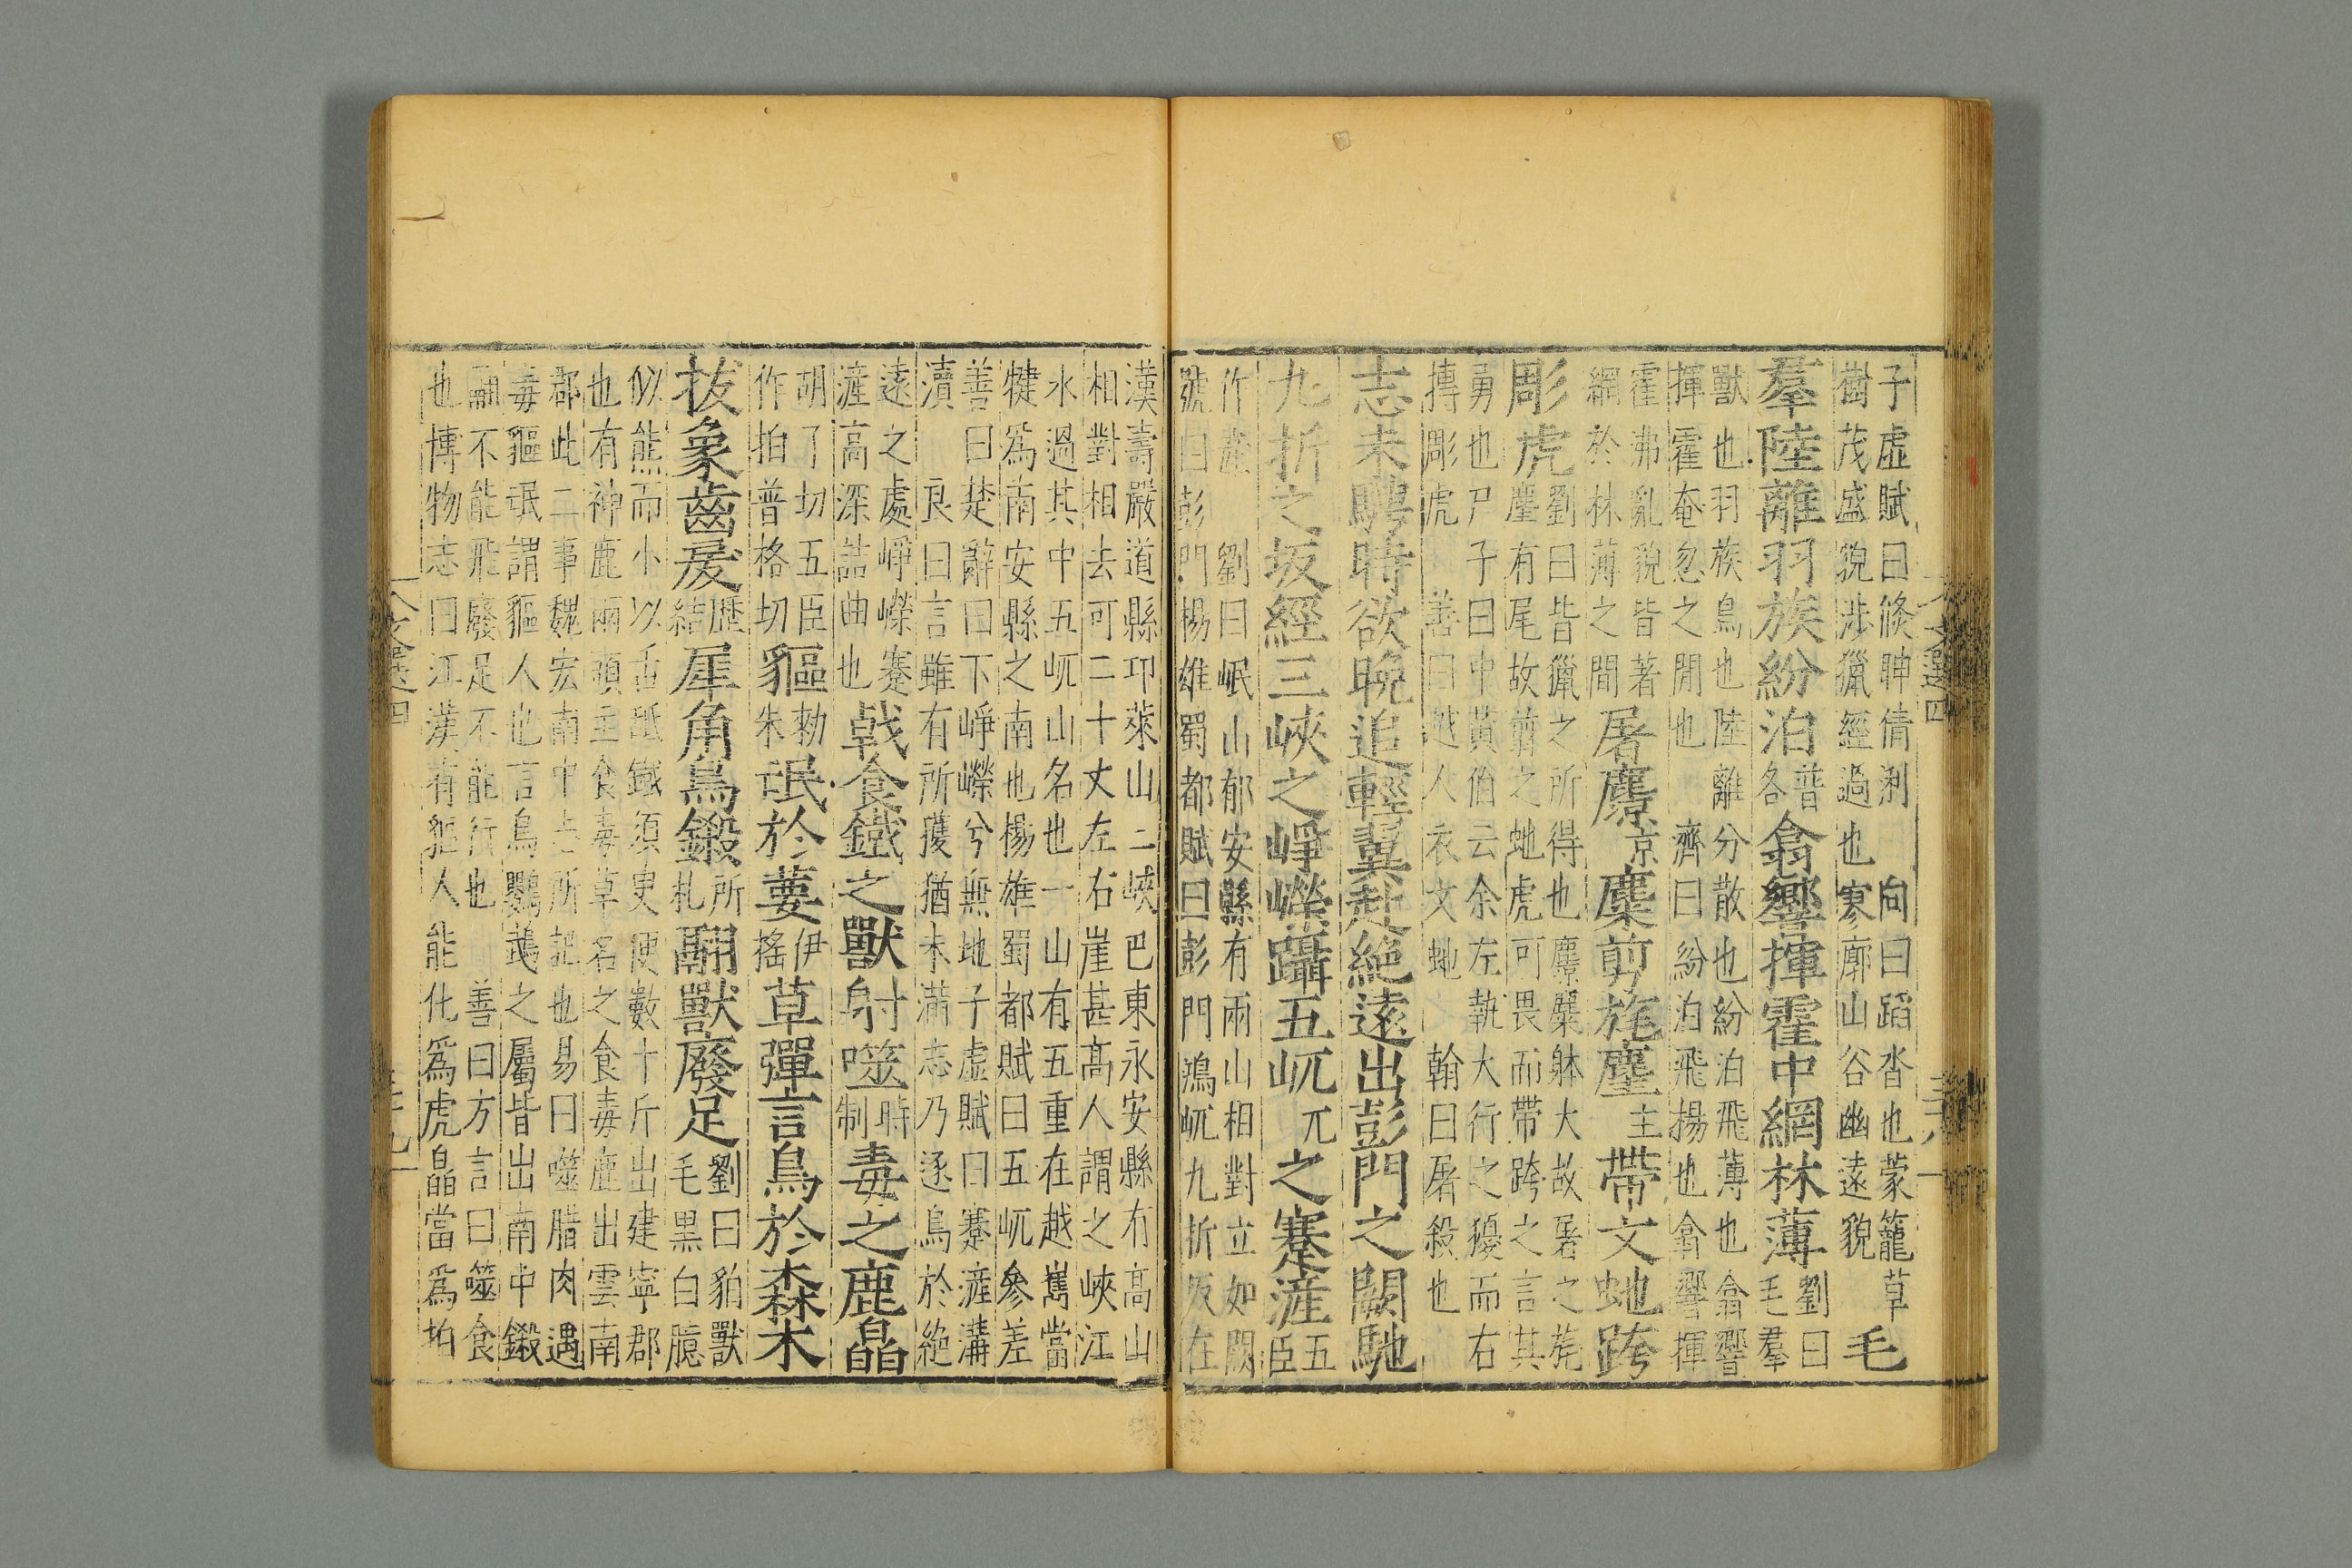 子虚賦曰倏眒倩浰　向曰蹈沓也蒙籠草
樹茂盛貌涉獵經過也寥廓山谷幽遠貌　毛
羣陸離羽族紛泊普各翕響揮霍中網林薄劉曰毛羣
獸也羽族鳥也陸離分散也紛泊飛薄也翕響
揮霍奄忽之閒也　濟曰紛泊飛揚也翕響揮
霍沸亂貌皆著
網於林薄之間　屠麖京麋剪旄麈主帶文虵跨
彫虎劉曰皆獵之所得也麖麋躰大故屠之旄
麈有尾故剪之虵虎可畏而帶跨之言其
勇也尸子曰中黄伯云余左執大行之獶而右
摶彫虎　善曰越人衣文虵　翰曰屠殺也
志未騁時欲晚追輕翼赴絶遠出彭門之闕馳
九折之坂經三峽之崢嶸躡五屼兀之蹇滻五臣
作嵼　劉曰岷山郁安縣有兩山相對立如闕
號曰彭門楊雄蜀都賦曰彭門鴻屼九折坂在
漢壽嚴道縣卭萊山三峽巴東永安縣有高山
相對相去可二十丈左右崖甚高人謂之峽江
水過其中五屼山名也一山有五重在越嶲當
犍爲南安縣之南也楊雄蜀都賦曰五屼參差
善曰楚辭曰下崢嶸兮無地子虚賦曰蹇滻溝
瀆　良曰言雖有所獲猶未滿志乃逐鳥於絶
遠之處崢嶸蹇
滻高深詰曲也　戟食鐵之獸射噬時制毒之鹿皛
胡了切五臣
作拍普格切貙勑朱氓於葽伊摇草彈言鳥於森木
拔象齒戾歷結犀角鳥鎩所札翮獸廢足劉曰貊獸
毛黒白臆
似熊而小以舌舐鐵須臾便數十斤出建寧郡
也有神鹿兩頭主食毒草名之食毒鹿出雲南
郡此二事魏宏南中志所記也易曰噬腊肉遇
毒貙氓謂貙人也言鳥鸚鵡之屬皆出南中鎩
翮不能飛廢足不能行也　善曰方言曰噬食
也博物志曰江漢有貙人能化爲虎皛當爲拍
文選四
三十八
文選四
三十九